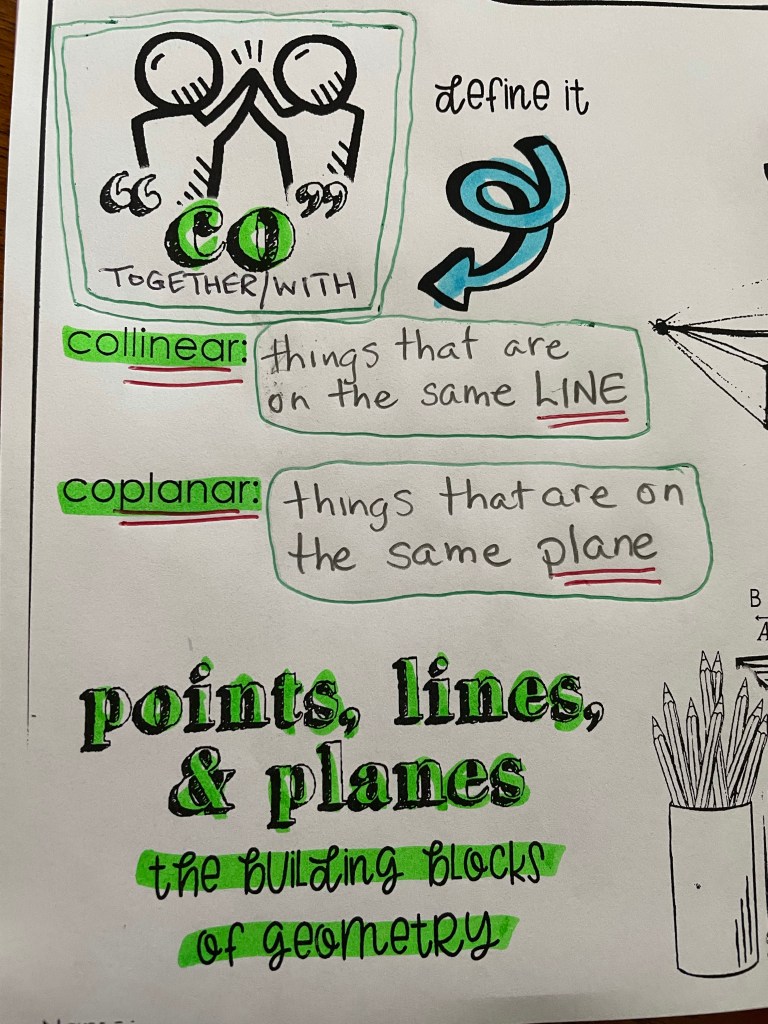 define it
“CO”
TOGETHER/WITH
collinear: things that are
on the same LINE
coplanar: things that are on
the same plane
B
A
points, lines,
& planes
the building blocks
of geometry